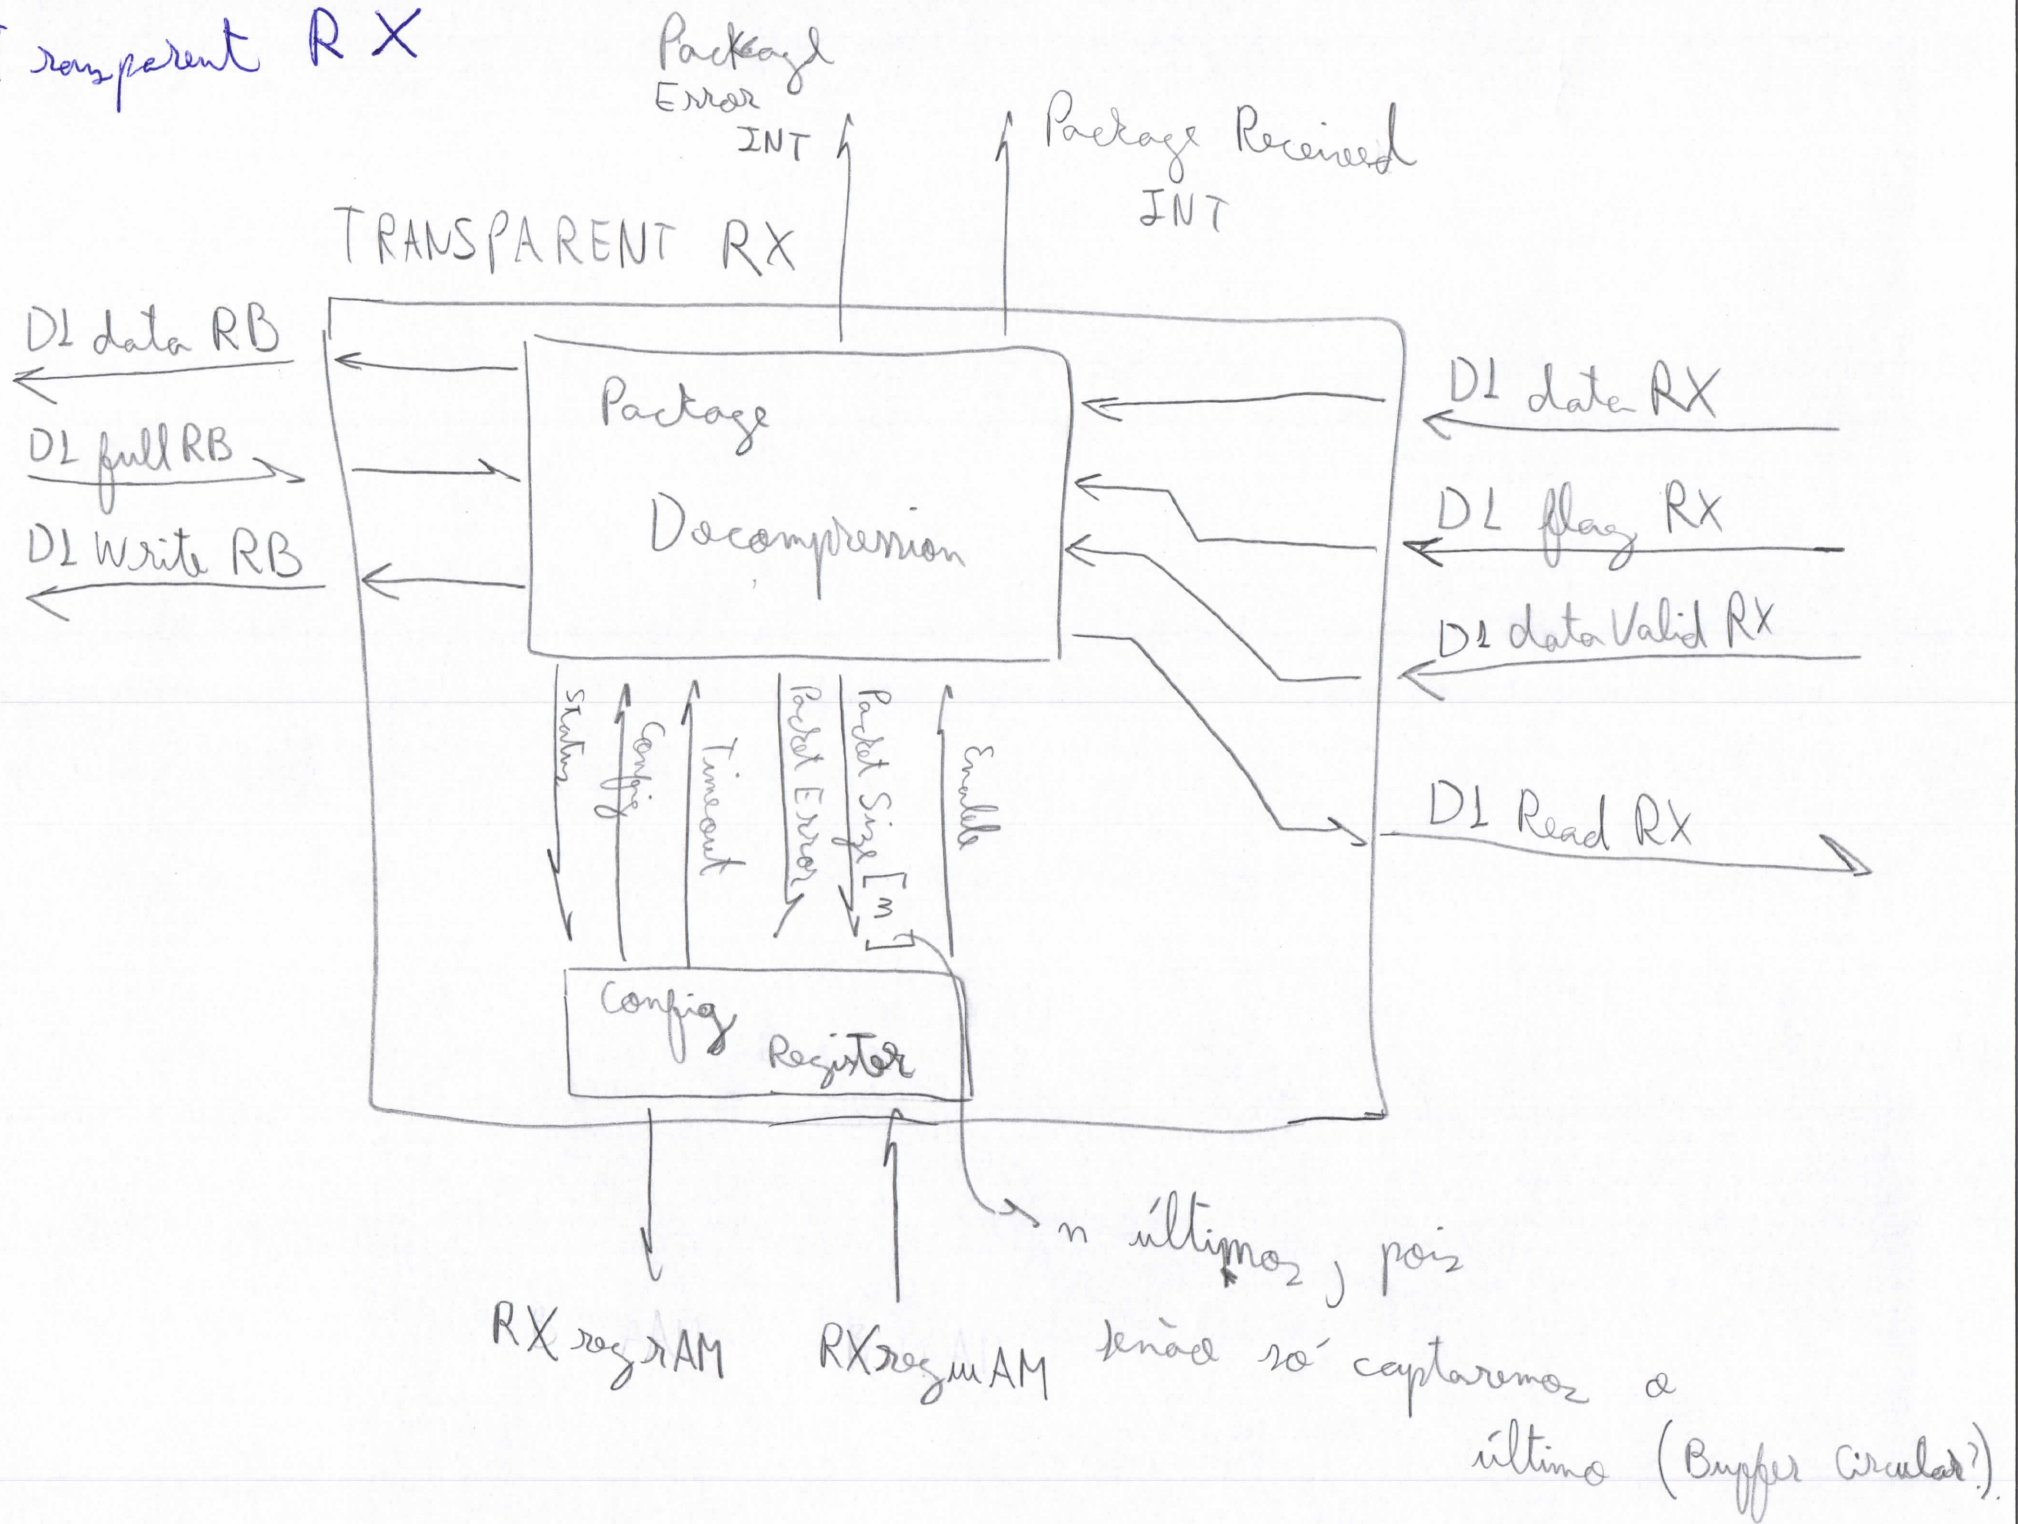 Transparent RX
Package
Error
INT
Package Received
INT
TRANSPARENT RX
D1 data RB
D1 full RB
D1 Write RB
Package
Decompression
D1 data RX
D1 flag RX
D1 data Valid RX
D1 Read RX
Status
Config
Timeout
Packet Error
Packet Size [n]
Enable
Config
Register
RX reg rAM
RX reg wAM
n últimos, pois
senão só captaremos o
último (Buffer Circular?).